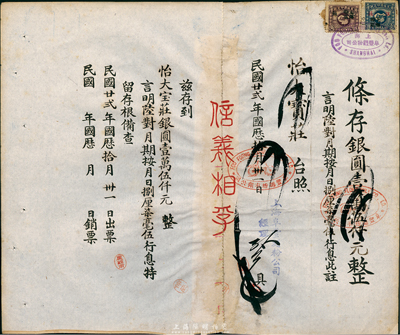 條存銀圓壹萬伍仟元整
言明陸對月期按月日捌厘壹毫伍行息此註
怡大寶莊 台照
民國廿貳年國歷拾月卅一日
具
信義相孚
茲存到
怡大宝莊銀圓壹萬伍仟元 整
言明陸對月期按月日捌厘壹毫伍行息特
留存根備查
民國廿貳年國歷拾月卅一日出票
民國 年國歷 月 日銷票
SHANGHAI